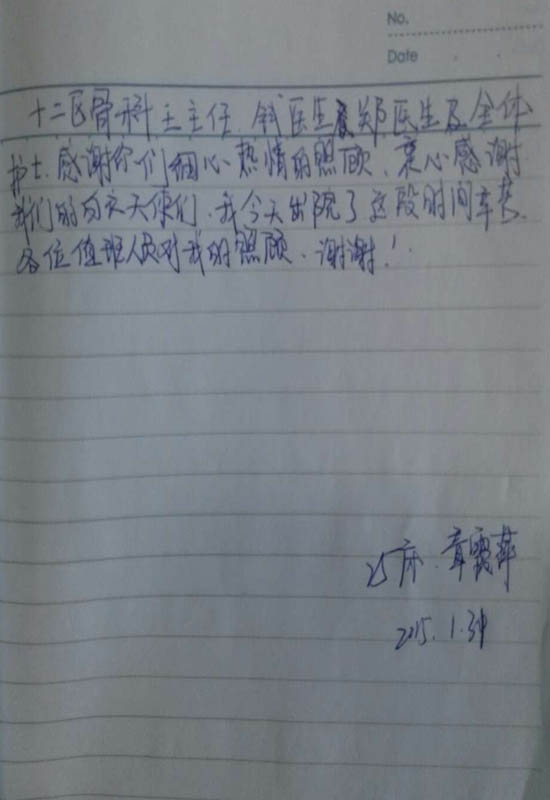 No.
Date
十二区骨科王主任、钱医生及郑医生及全体
护士、感谢你们细心热情的照顾、衷心感谢
我们的白衣天使们、我今天出院了这段时间辛苦
各位值班人员对我的照顾、谢谢!
25床、章霞萍
2015.1.